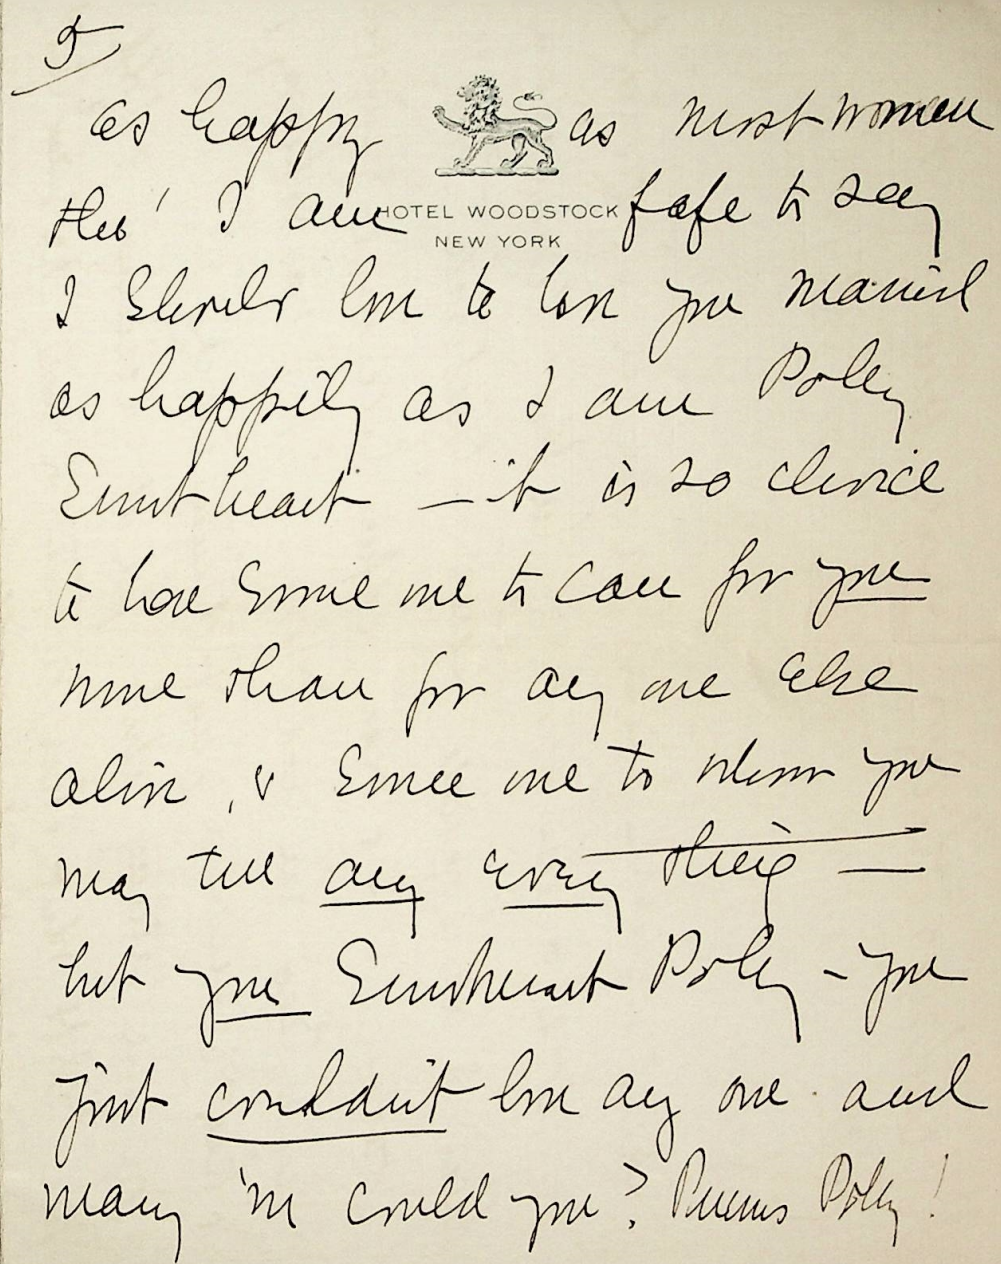 5
as happy as most women
HOTEL WOODSTOCK
NEW YORK
tho' I am safe to say
I should love to have you married
as happily as I am Polly
Sweetheart — it is so choice
to have some one to care for you
more than for any one else
alive, & some one to whom you
may tell any every thing —
but you Sweetheart Polly - you
just couldn't love any one and
marry 'm could you? Polly!